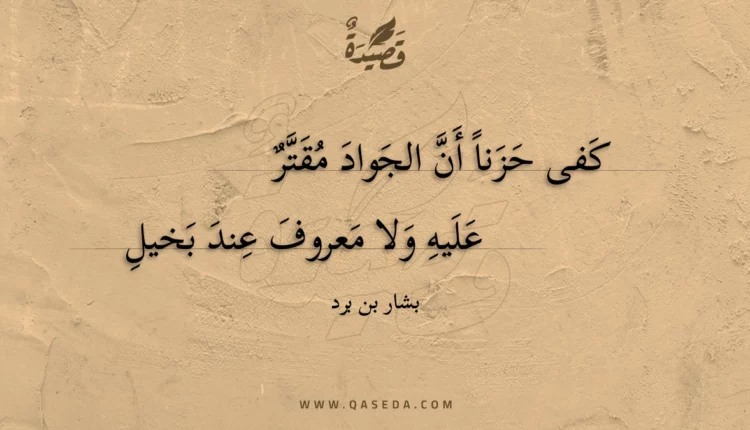 قَصِيدَةٌ
كَفى حَزَناً أَنَّ الجَوادَ مُقَتَّرٌ
عَلَيهِ وَلا مَعروفَ عِندَ بَخيلِ
بشار بن برد
WWW.QASEDA.COM